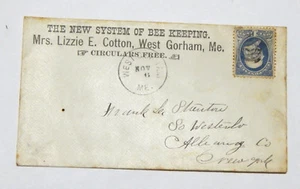 THE NEW SYSTEM OF BEE KEEPING.
Mrs. Lizzie E. Cotton, West Gorham, Me.
CIRCULARS FREE.
WES
NOV
6
ME.
Frank L. Stanton
So Westerlo
Albany Co
New York